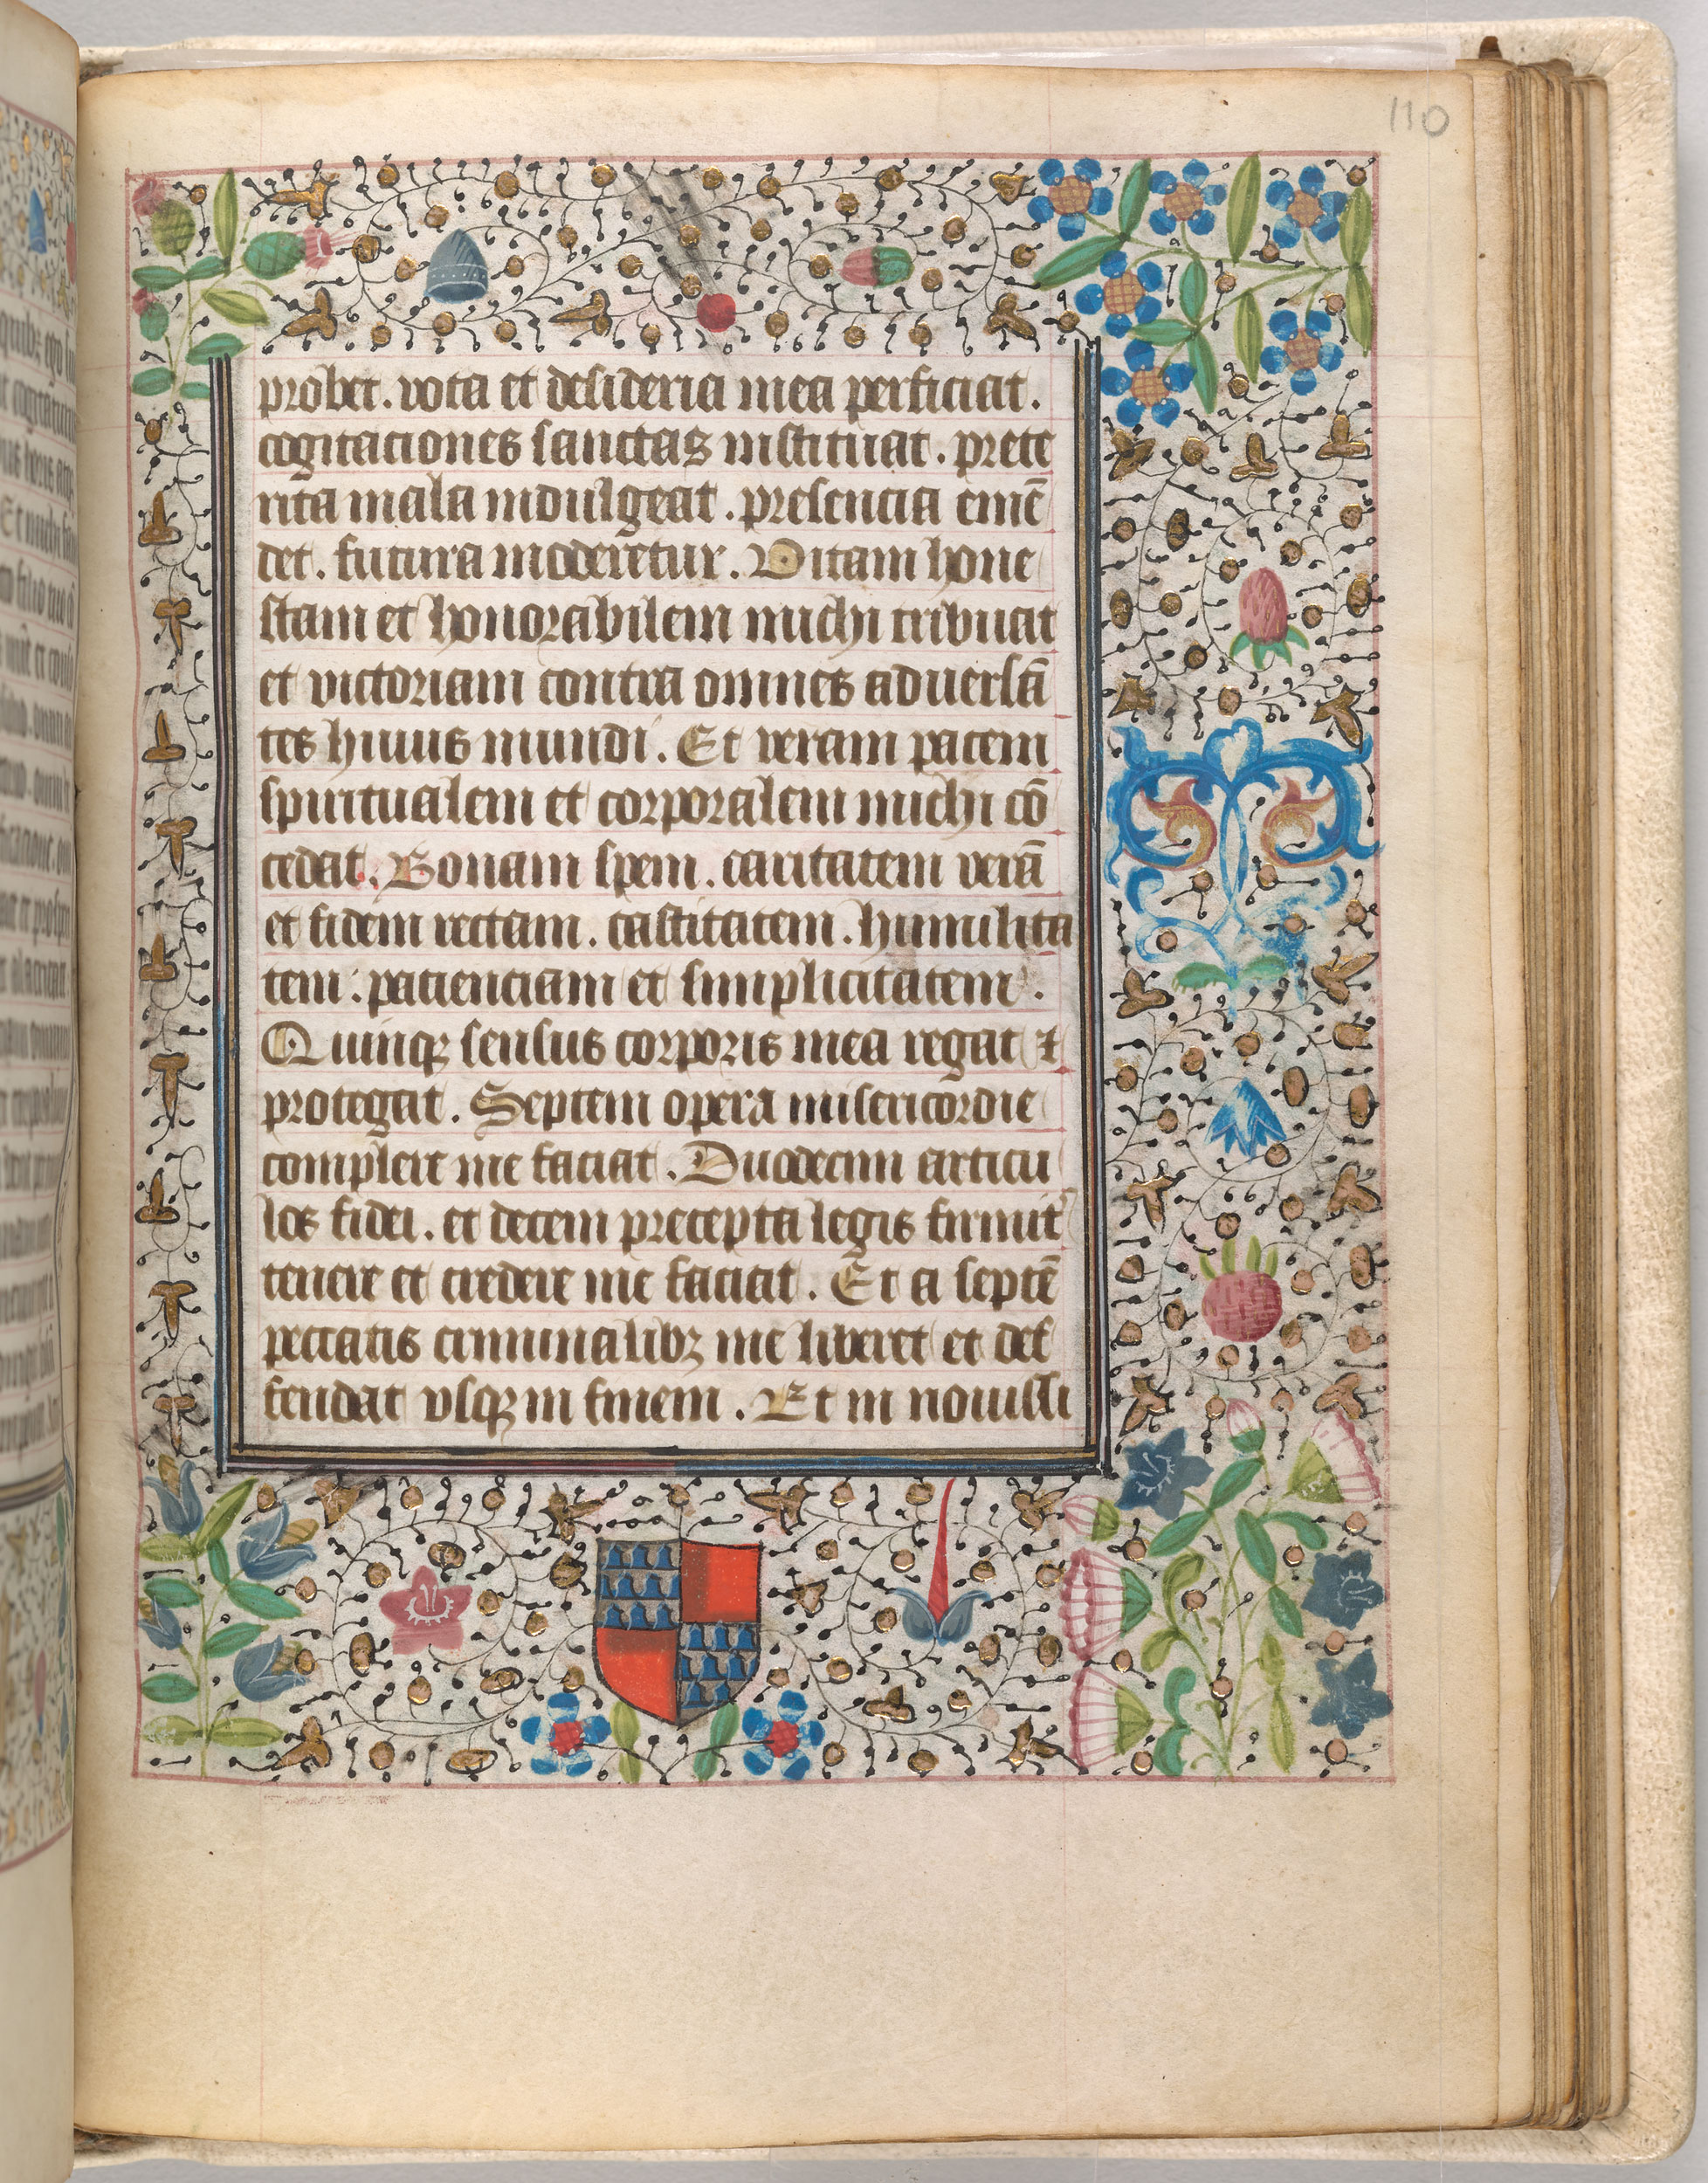 110
probet. vota et desideria mea perficiat.
cogitaciones sanctas instituat. prete
rita mala indulgeat. presencia emē
det. futura moderetur. Vitam hone
stam et honorabilem michi tribuat
et victoriam contra omnes aduersā
tes huius mundi. Et veram pacem
spiritualem et corporalem michi cō
cedat. Bonam spem. caritatem verā
et fidem rectam. castitatem. humilita
tem: pacienciam et simplicitatem.
Quinqꝫ sensus corporis mea regat ⁊
protegat. Septem opera misericordie
complere me faciat. Duodecim articu
los fidei. et decem precepta legis firmit᷑
tenere et credere me faciat. Et a septē
peccatis criminalibꝫ me liberet et def
fendat vsqꝫ in finem. Et in nouissi